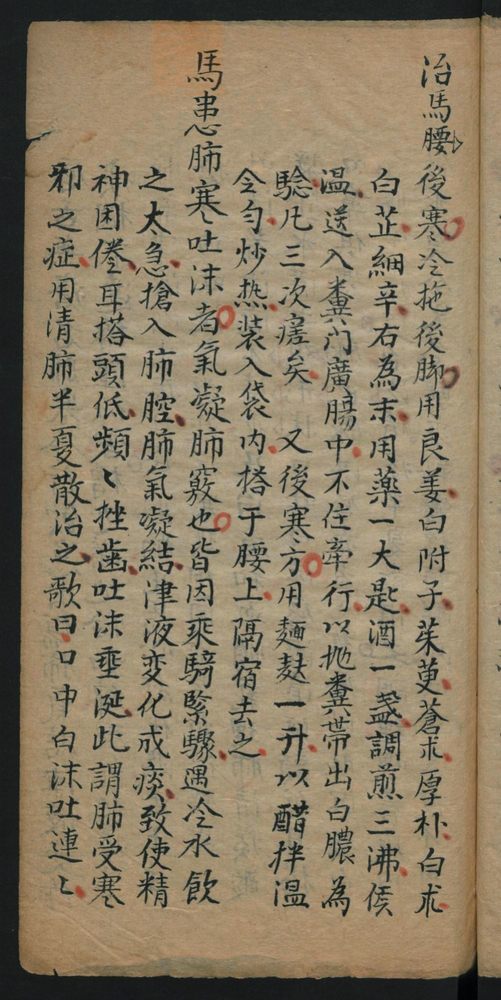 治馬腰後寒冷拖後脚用良姜白附子茱萸蒼朮厚朴白朮
白芷細辛右為末用藥一大匙酒一盏調煎三沸侯
温送入糞门廣腸中不住牽行以抛糞带出白膿為
騐凡三次瘥矣 又後寒方用麺麸一升以醋拌温
令匀炒热装入袋内搭于腰上隔宿去之
馬患肺寒吐沫者氣凝肺竅也皆因乘騎緊驟遇冷水飲
之太急搶入肺腔肺氣凝結津液变化成痰致使精
神困倦耳搭頭低頻〻挫歯吐沫垂涎此謂肺受寒
邪之症用清肺半夏散治之歌曰口中白沫吐連〻